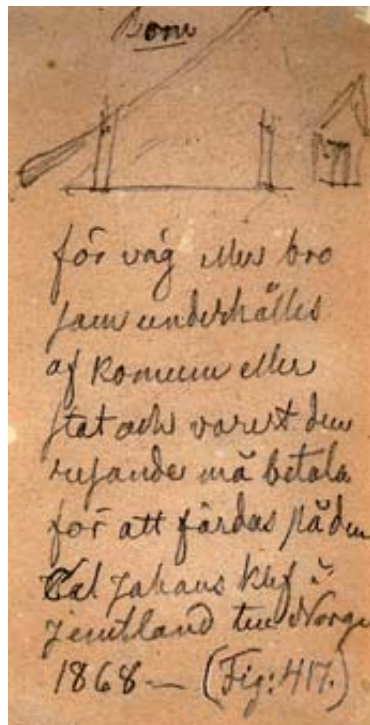 Bom
för väg eller bro
som underhålles
af Komun eller
stat och varest den
resande må betala
för att färdas på den
Carl Johans klef i
Jemtland till Norge
1868 — (Fig: 417.)